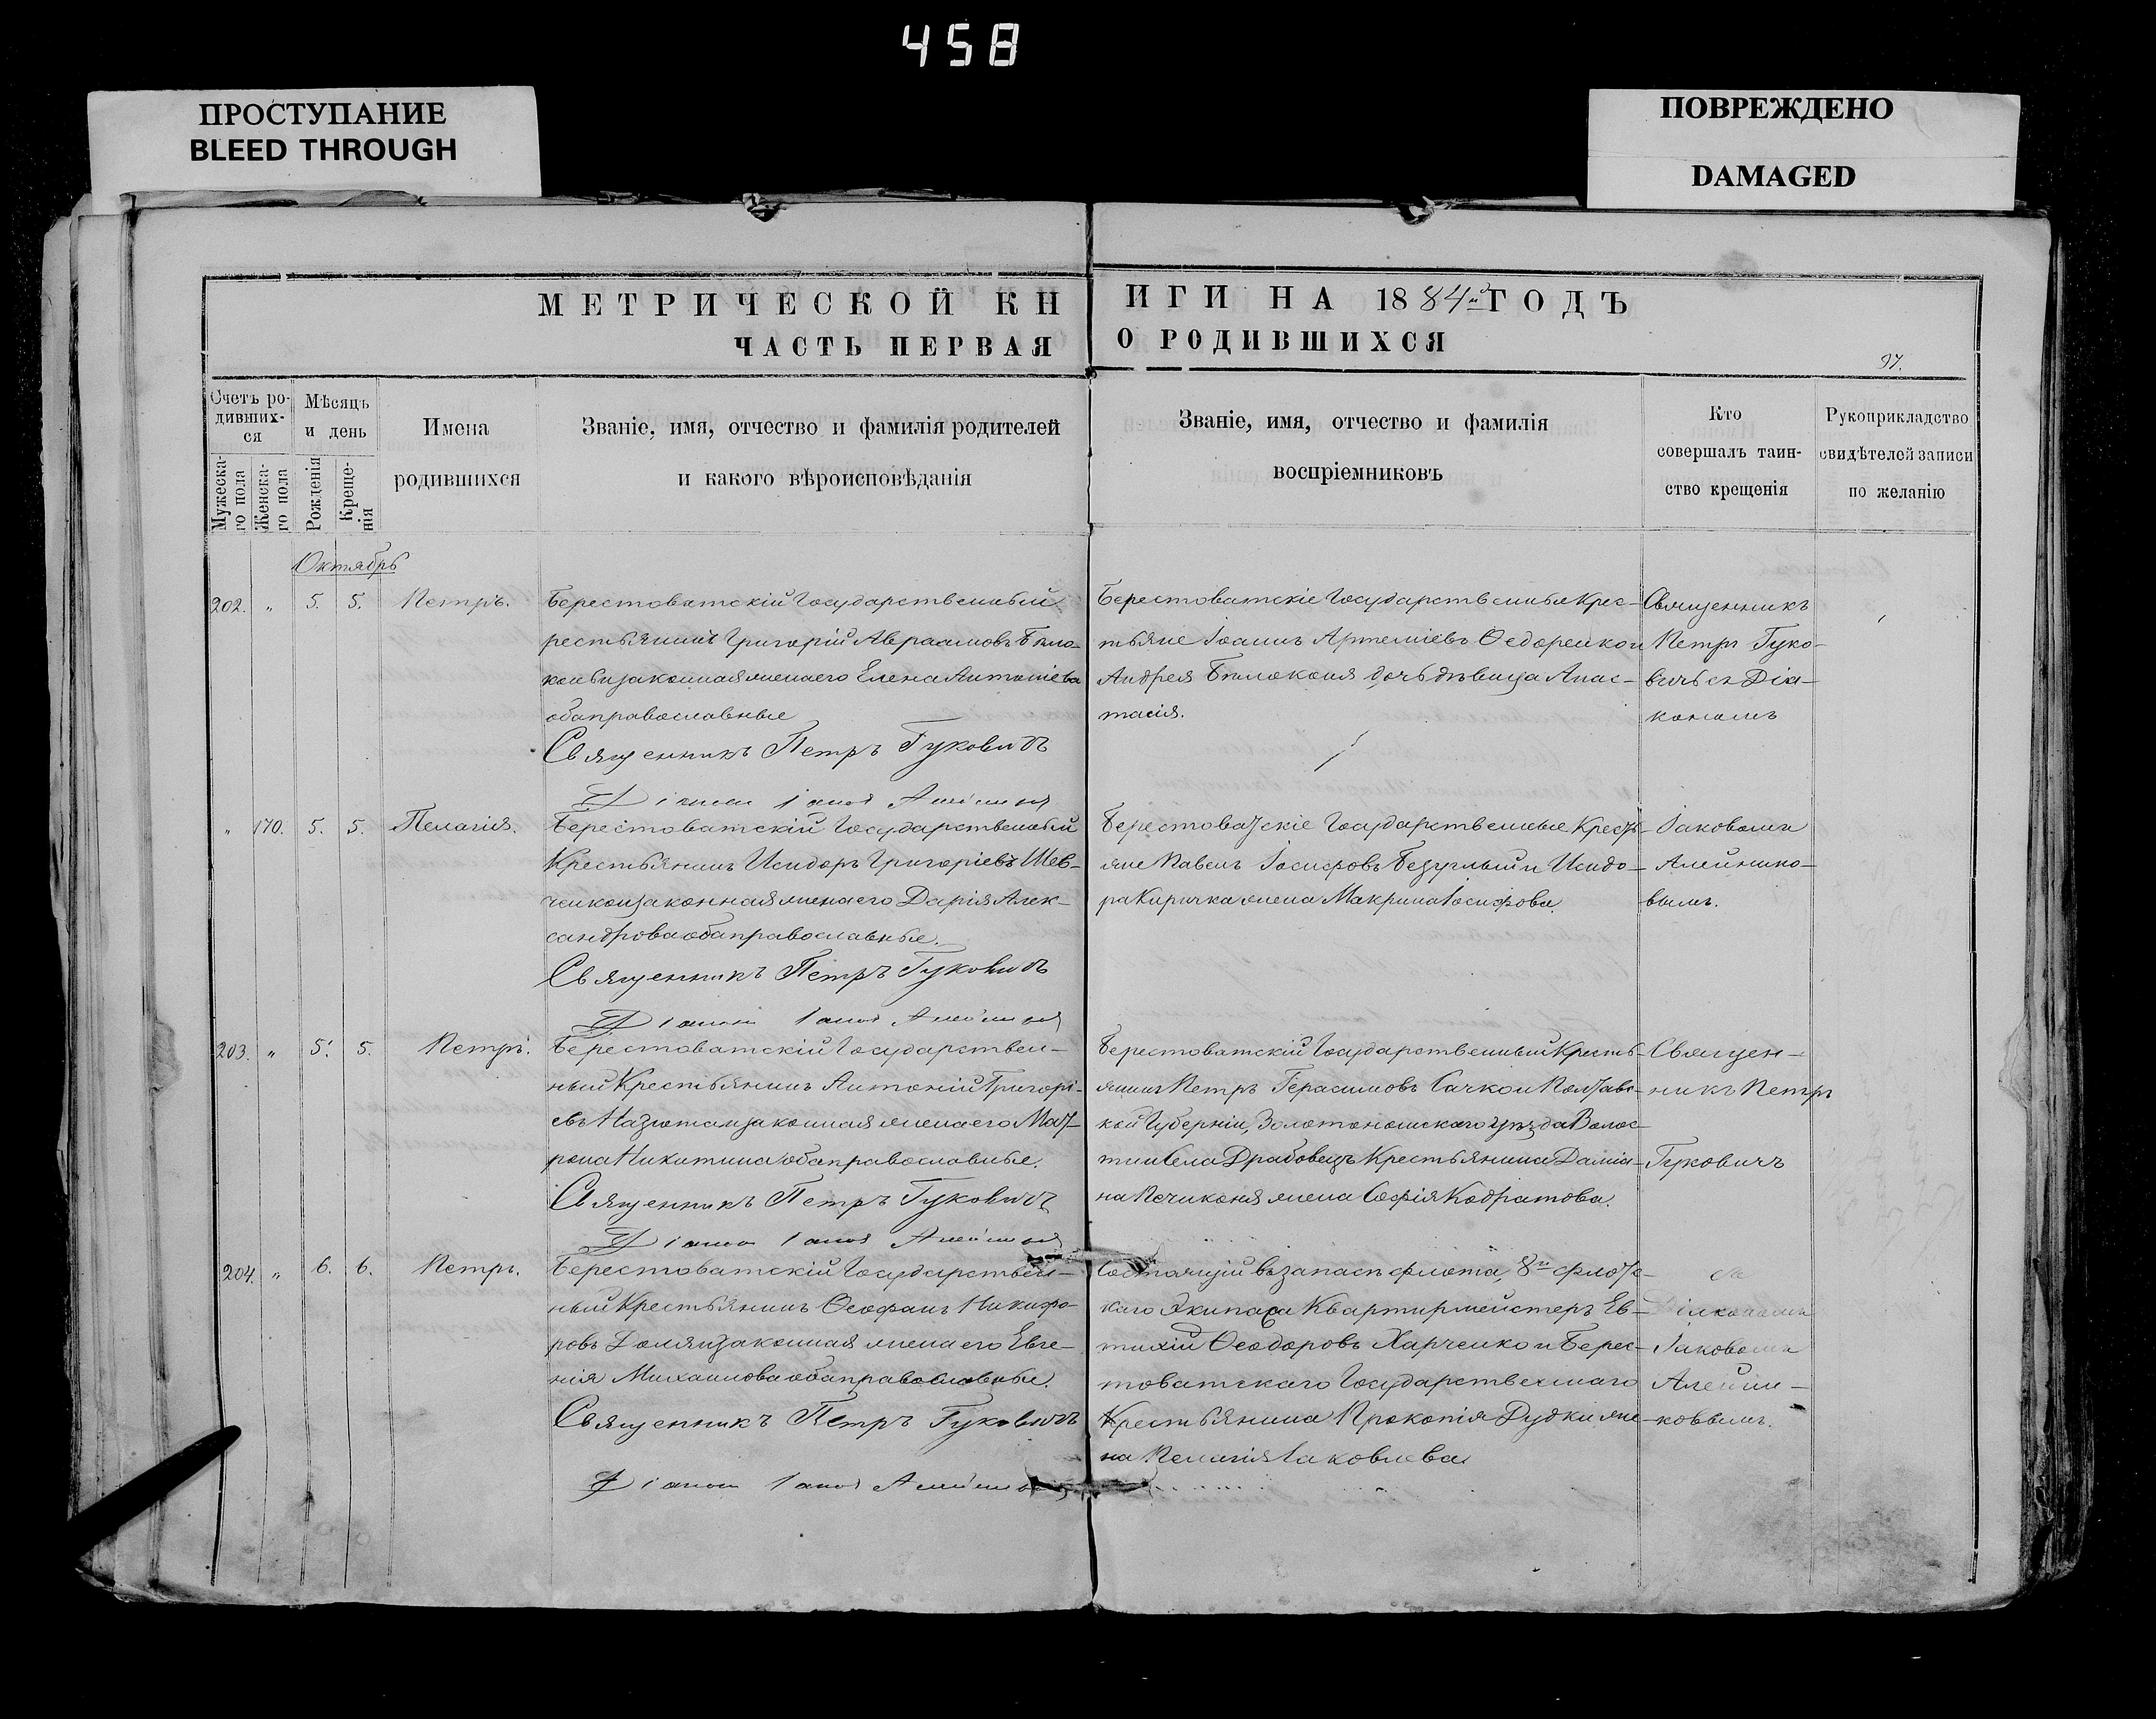 458
ПРОСТУПАНИЕ
BLEED THROUGH
ПОВРЕЖДЕНО
DAMAGED
МЕТРИЧЕСКОЙ КНИГИ НА 1884й ГОДЪ
ЧАСТЬ ПЕРВАЯ О РОДИВШИХСЯ
97.
Счетъ ро-
дивших-
ся
Мужеска-
го пола
Женска-
го пола
Мѣсяцъ
и день
Рожденія
Креще-
нія
Имена
родившихся
Званіе, имя, отчество и фамилія родителей
и какого вѣроисповѣданія
Званіе, имя, отчество и фамилія
воспріемниковъ
Кто
совершалъ таин-
ство крещенія
Рукоприкладство
свидѣтелей записи
по желанію
Октябрь
202. " 5. 5. Петръ.
Берестоватскій Государственный
рестьянинъ Григорій Авраамовъ Бѣло-
конь и законная жена его Елена Антоніева
оба православные
Священникъ Петръ Гуковичъ
Берестоватскіе Государственные Крес-
тьяне Іоаннъ Артеміевъ Ѳедоренко и
Андрея Бѣлоконя дочь дѣвица Анас-
тасія.
Священникъ
Петръ Гуко-
вичъ съ Діа-
кономъ
" 170. 5. 5. Пелагія.
Берестоватскій Государственный
Крестьянинъ Исидоръ Григоріевъ Шев-
ченко и законная жена его Дарія Алек-
сандрова оба православные.
Священникъ Петръ Гуковичъ
Берестоватскіе Государственные Кресть-
яне Павелъ Іосифовъ Безуглый и Исидо-
ра Киричка жена Макрина Іосифова.
Іаковомъ
Алейнико-
вымъ.
203. " 5. 5. Петръ.
Берестоватскій Государствен-
ный Крестьянинъ Антоній Григорі-
евъ и законная жена его Мат-
рона Никитина оба православные.
Священникъ Петръ Гуковичъ
Берестоватскій Государственный Кресть-
янинъ Петръ Герасимовъ Сачко и Полтавс-
кой Губерніи, Золотоношскаго уѣзда Волос-
ти и Села Драбовецъ Крестьянина Даміа-
на жена Софія Кодратова.
Священ-
никъ Петръ
Гуковичъ
204. " 6. 6. Петръ.
Берестоватскій Государствен-
ный Крестьянинъ Ѳеофанъ Никифо-
ровъ и законная жена его Евге-
нія Михаилова оба православные.
Священникъ Петръ Гуковичъ
Состоящій въ запасѣ флота, 8го флотс-
каго Экипажа Квартирмейстеръ Ев-
тихій Ѳеодоровъ Харченко и Берес-
товатскаго Государственнаго
Крестьянина Прокопія Дудки же-
на Пелагія Іаковлева
съ
Діакономъ
Іаковомъ
Алейни-
ковымъ.